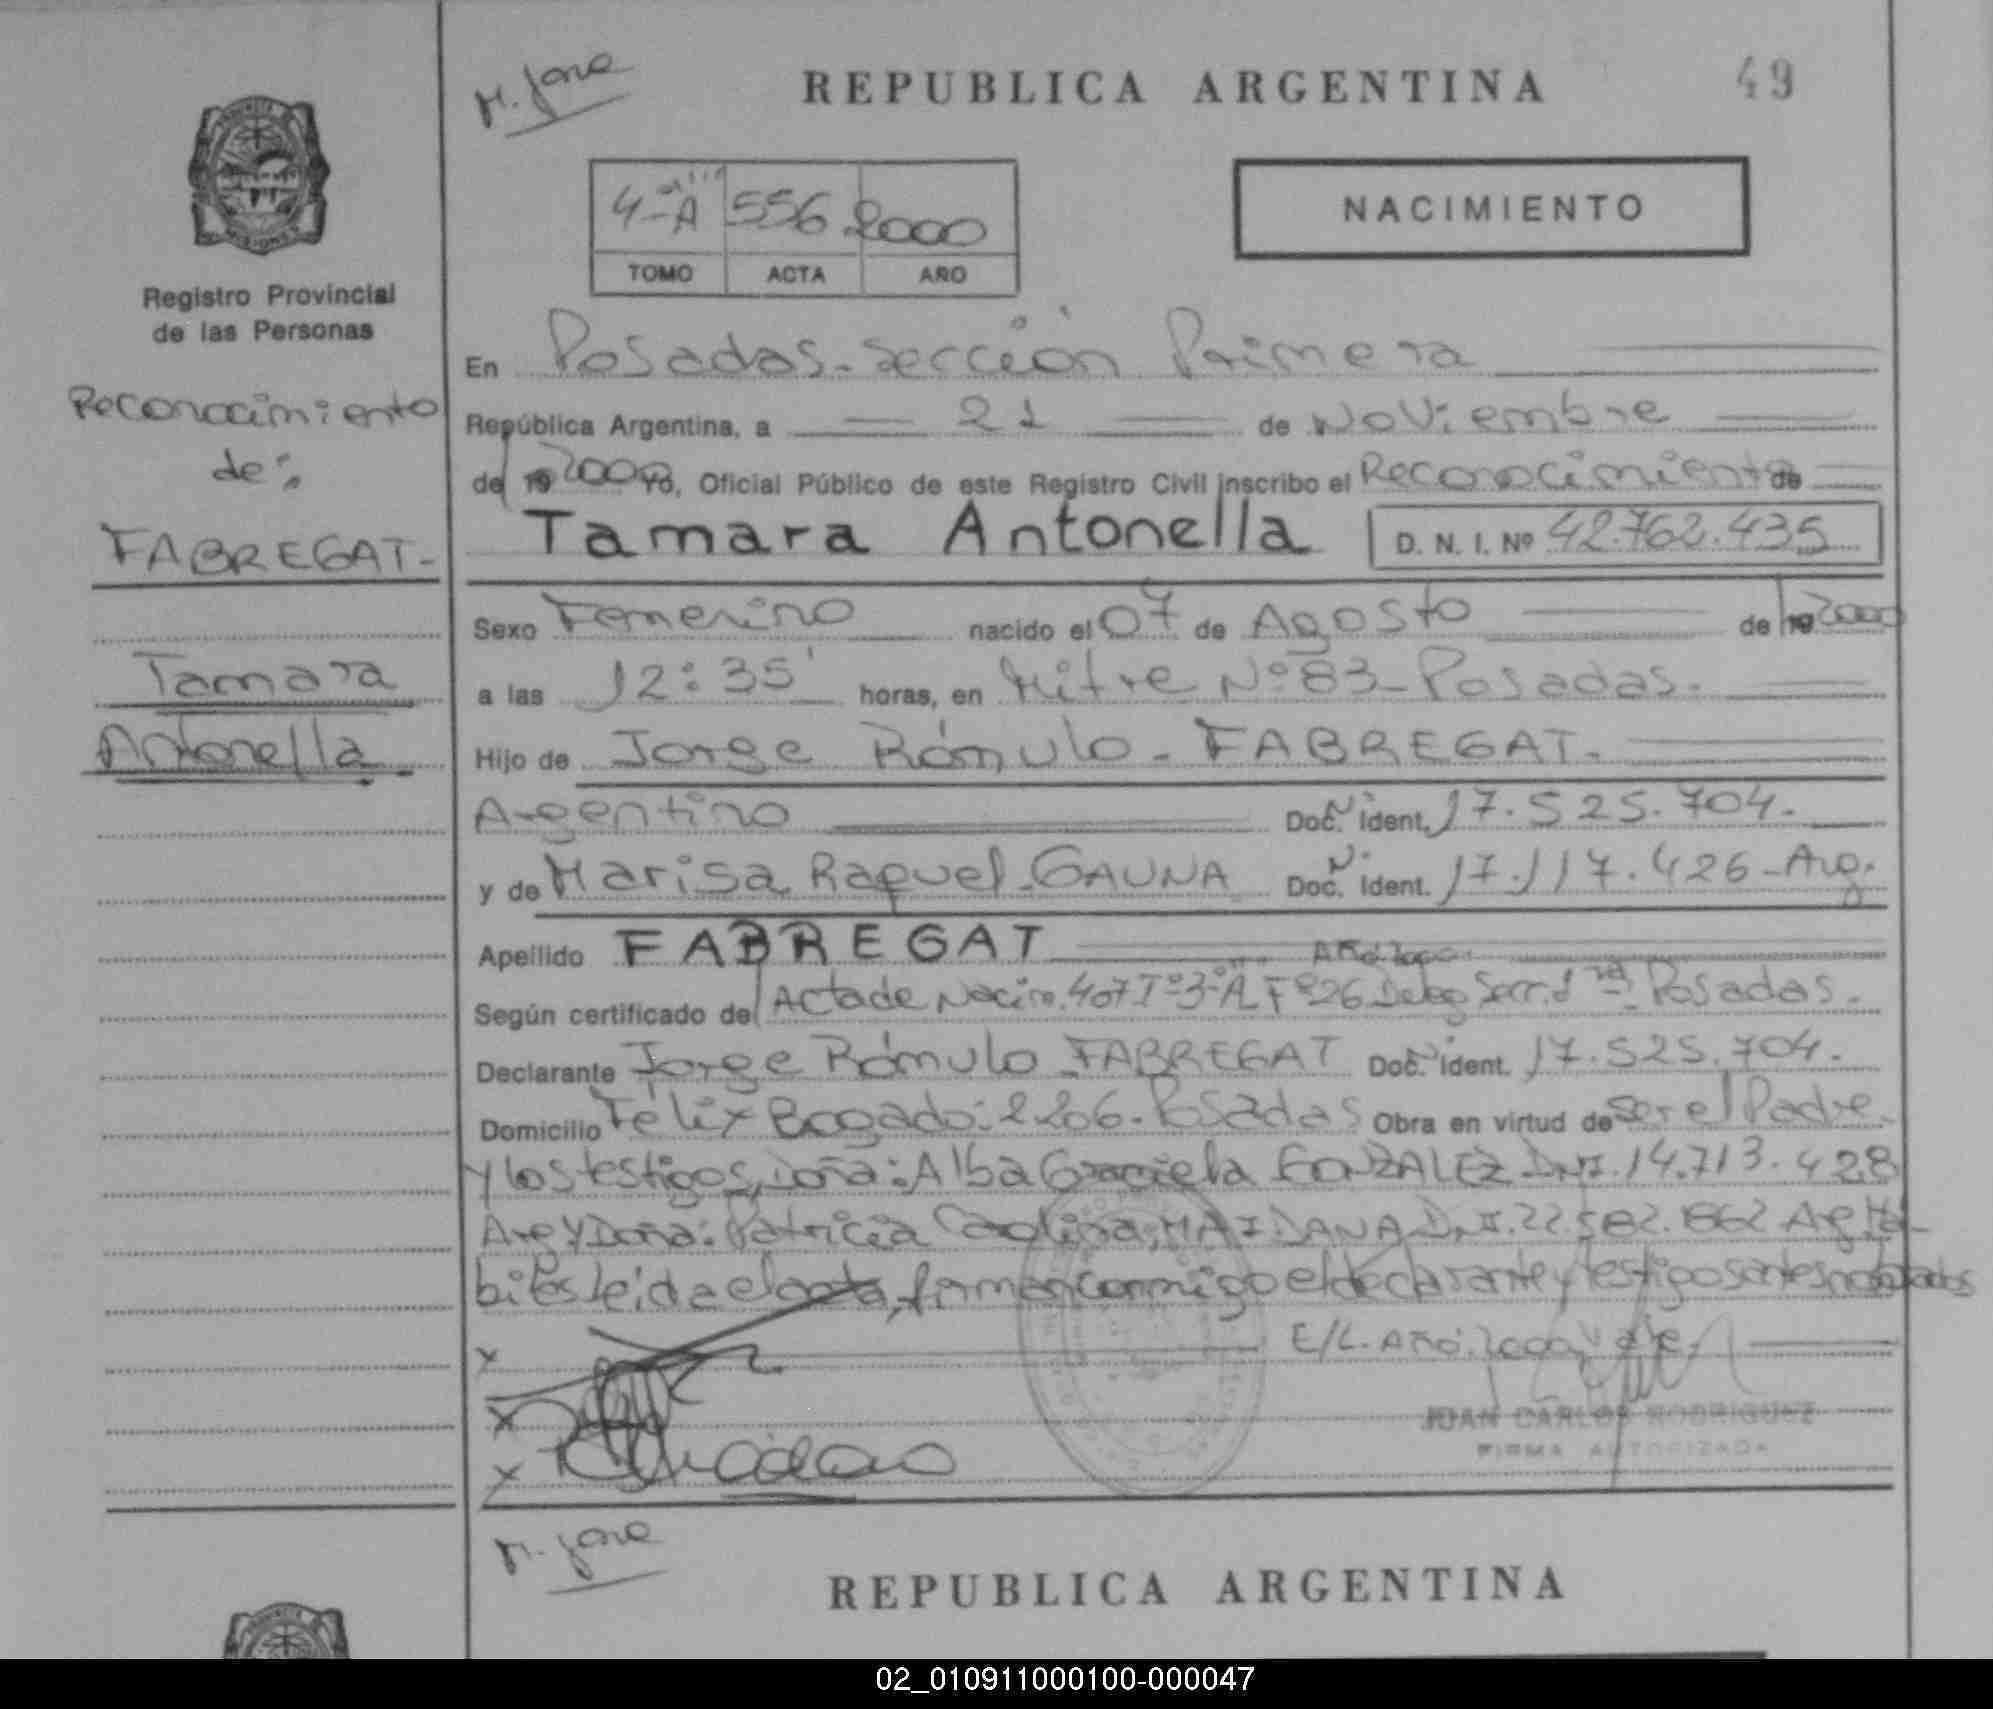 M. José
REPUBLICA ARGENTINA
49
4-ºA 556 2000
TOMO ACTA AÑO
NACIMIENTO
Registro Provincial
de las Personas
Reconocimiento
de:
FABREGAT-
Tamara
Antonella
En Posadas-Sección Primera
República Argentina, a 21 de Noviembre
de 19 2000 Yo, Oficial Público de este Registro Civil inscribo el Reconocimiento de
Tamara Antonella D. N. I. Nº 42.762.435
Sexo Femenino nacido el 07 de Agosto de 19 2000
a las 12:35' horas, en Mitre Nº 83-Posadas.
Hijo de Jorge Rómulo - FABREGAT.
Argentino Doc. Ident. 17.525.704.
y de Marisa Raquel-GAUNA Doc. Ident. 17.117.426-Arg.
Apellido FABREGAT
Año 2000.
Según certificado de Acta de Nacim. 407 Tº 3-ºA Fº 26 Deleg Secc. 1ra Posadas.
Declarante Jorge Rómulo FABREGAT Doc. Ident. 17.525.704.
Domicilio Félix Bogado: 2206-Posadas Obra en virtud de ser el Padre.
y los testigos, Doña: Alba Graciela GONZALEZ DNI. 14.713.428
Arg y Doña: Patricia Carolina MAIDANA DNI. 22.582.862 Arg Há-
biles leida el acta, firman conmigo el declarante y testigos antes nombrados
x E/L. Año: 2000, y de,
x
x
JUAN CARLOS RODRIGUEZ
FIRMA AUTORIZADA
M. José
REPUBLICA ARGENTINA
02_010911000100-000047